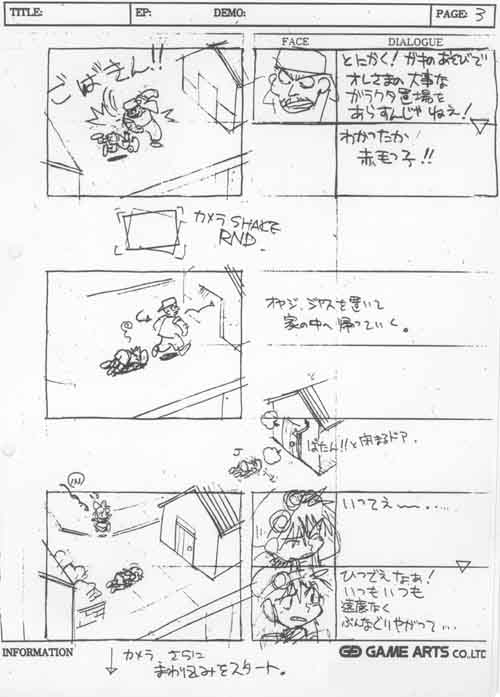 TITLE: EP: DEMO: PAGE: 3
FACE DIALOGUE
ごばきん!!
とにかく!ガキのあそびで
オレさまの大事な
ガラクタ置場を
あらすんじゃねえ!
わかったか
赤毛っ子!!
カメラSHAKE
RND.
オヤジ、ジャスを置いて
家の中へ帰っていく。
ばたん!!と閉まるドア.
IN
いってえ〜.....
ひっでえなぁ!
いつもいつも
遠慮なく
ぶんなぐりやがって...
INFORMATION
カメラ さらに
まわり込みをスタート。
GAME ARTS CO.,LTD